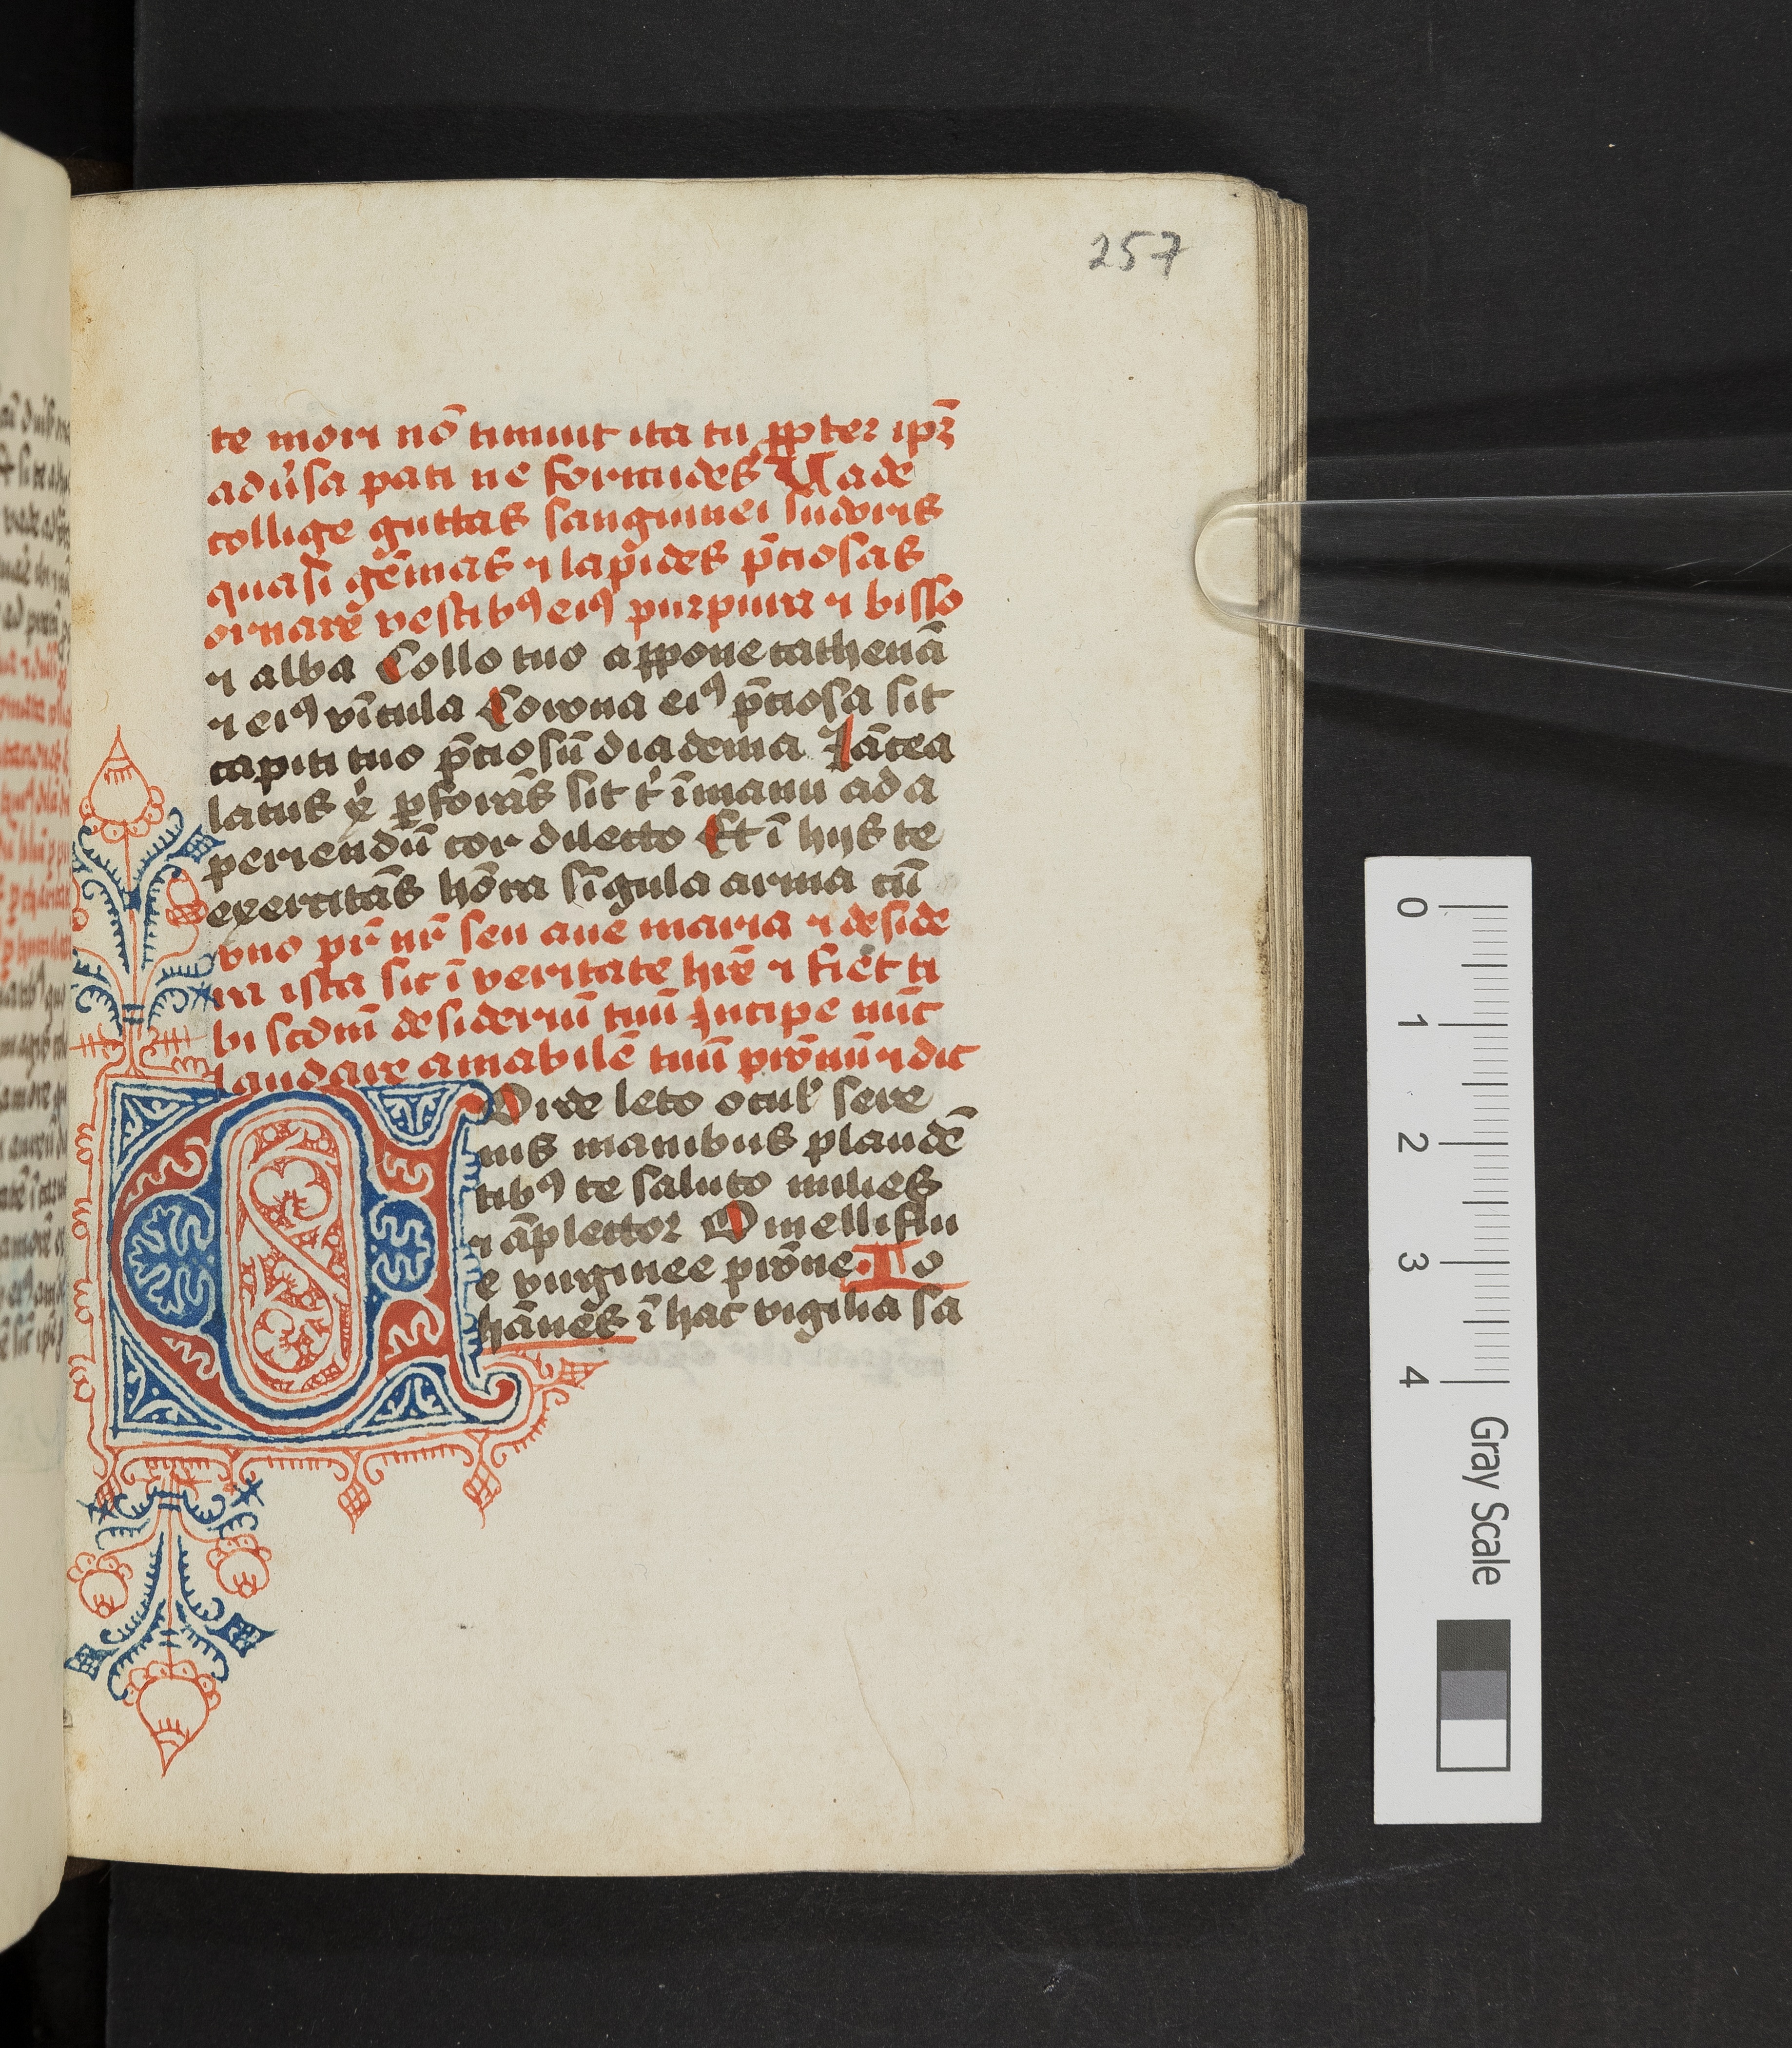 257
te mori nō timuit ita tu ꝓpter ip̄ꝫ
adūsa pati ne formides Vade
collige guttas sanguinei sudoris
quasi gēmas ⁊ lapides p̄ciosas
ornare vestibꝰ eiꝰ purpura ⁊ bisso
⁊ alba Collo tuo appone cathenā
⁊ eiꝰ vīcula Corona eiꝰ p̄ciosa sit
capiti tuo p̄ciosū diadema Lācea
latus ꝑforās sit t' ī manu ad a
periendū cor dilecto Et ī hijs te
exercitās hōra sīgula arma cū
vno pr̄ nr̄ seu aue maria ⁊ deside
ra ista sic ī veritate hr̄e ⁊ fiēt ti
bi scdm̄ desideriū tuū Incipe nūc
laudare amabilē tuū pr̄onū ⁊ dic
Corde leto ocul' sere
nis manibus plaudē
tibꝰ te saluto milies
⁊ āplector O melliflu
e virginee pr̄one Io
hānes ī hac vigilia sa
0
1
2
3
4
Gray Scale